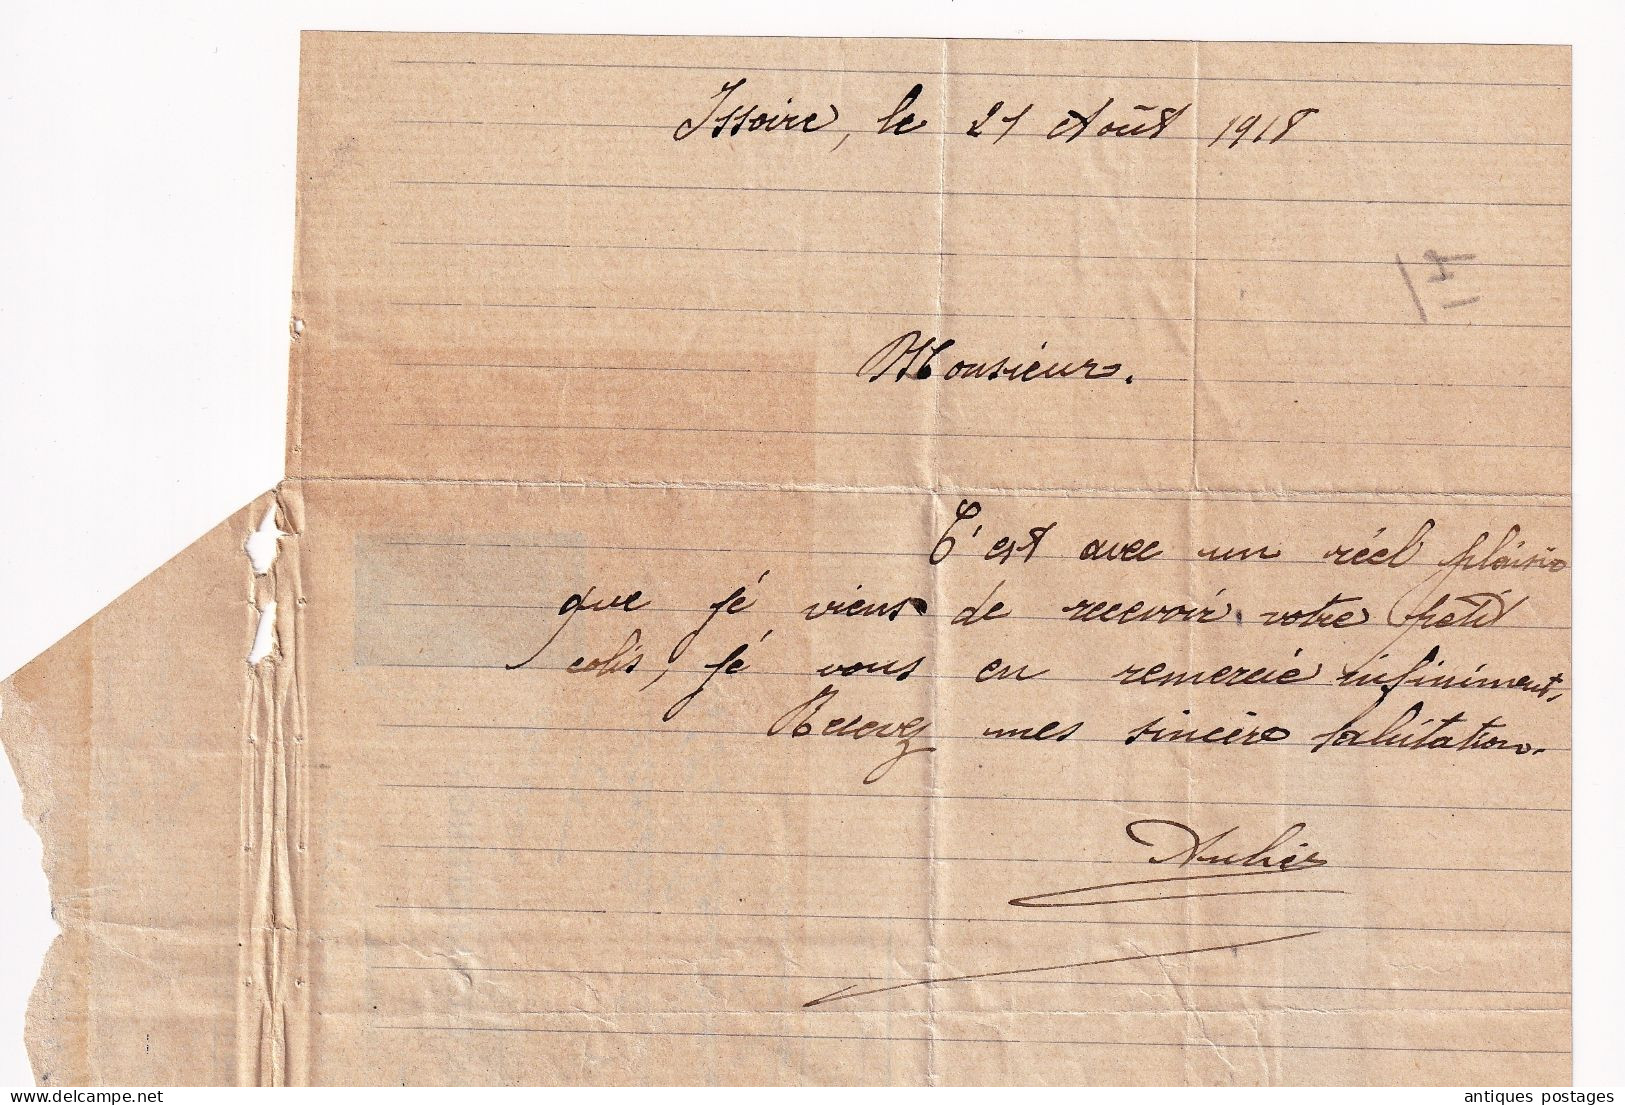 Issoire, le 21 Août 1918
Monsieur.
C'est avec un réel plaisir
que jé viens de recevoir votre petit
colis, jé vous en remercie infiniment,
Recevez mes sincère salutation.
delcampe.net
antiques postages